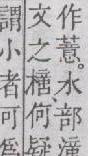 作薏。水部潼
文之橦、何疑
謂小者可爲